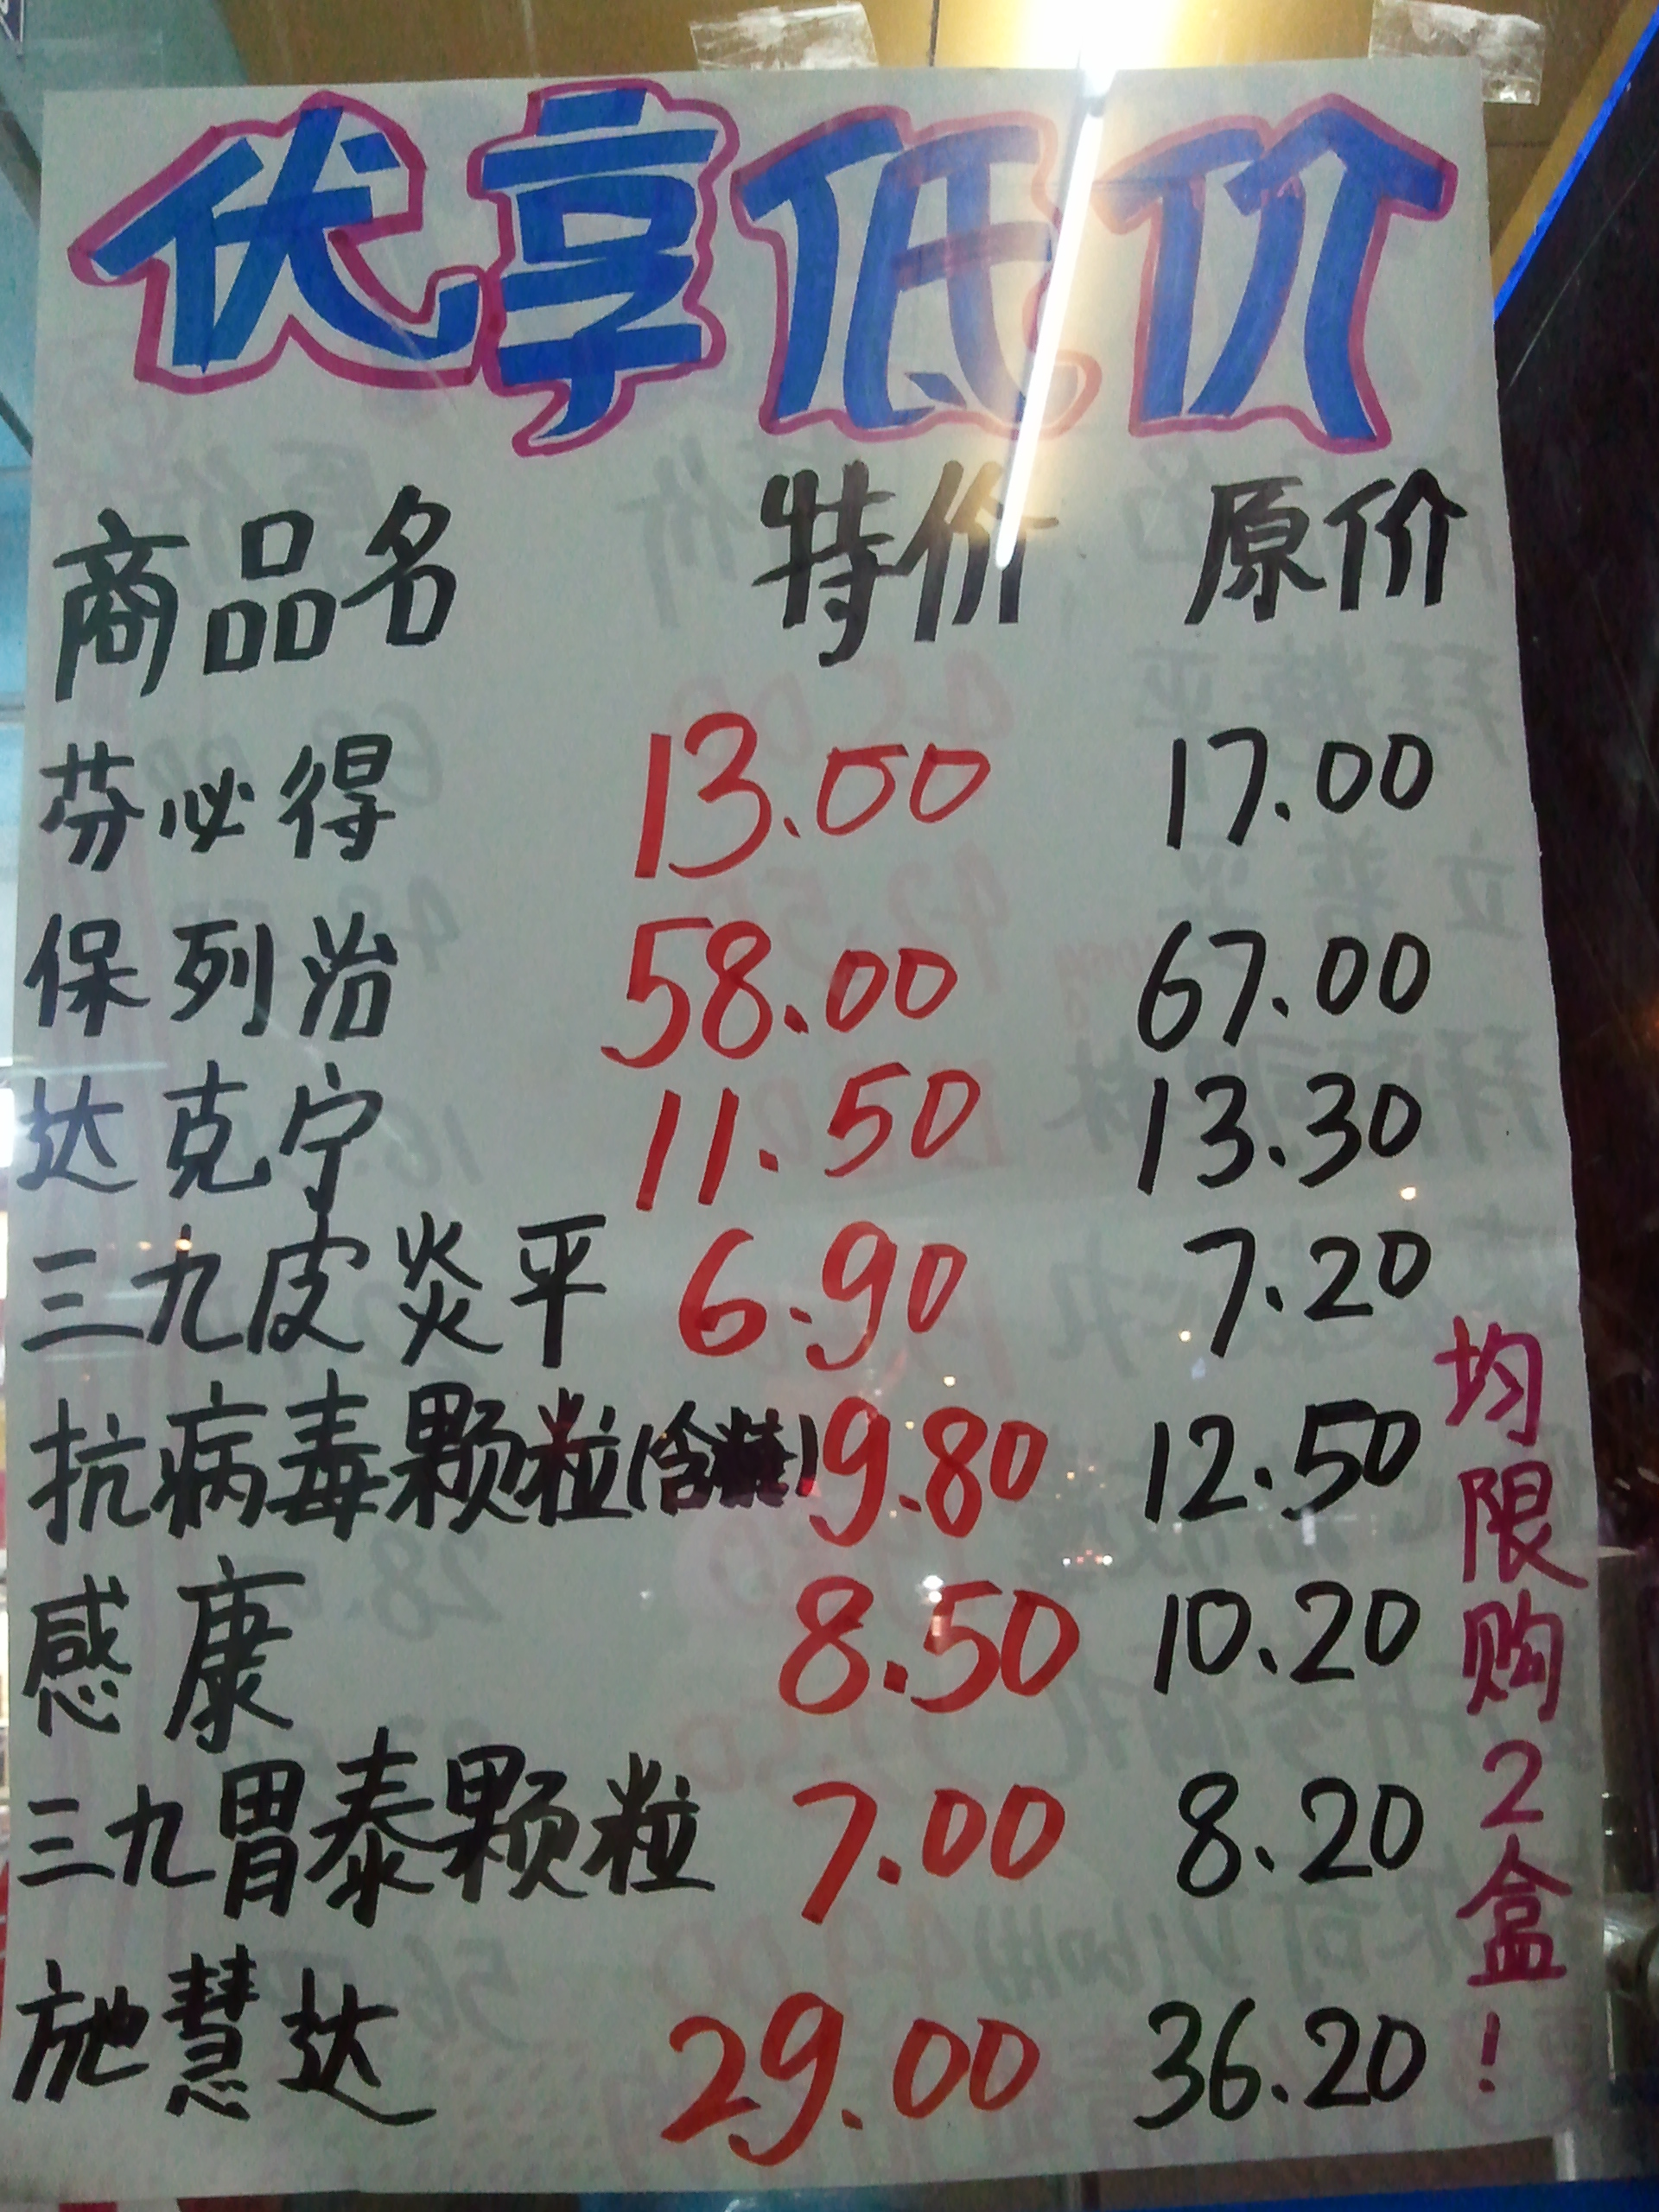 伏享低价
商品名 特价 原价
芬必得 13.00 17.00
保列治 58.00 67.00
达克宁 11.50 13.30
三九皮炎平 6.90 7.20
抗病毒颗粒(含糖) 9.80 12.50
感康 8.50 10.20
三九胃泰颗粒 7.00 8.20
施慧达 29.00 36.20
均限购2盒!